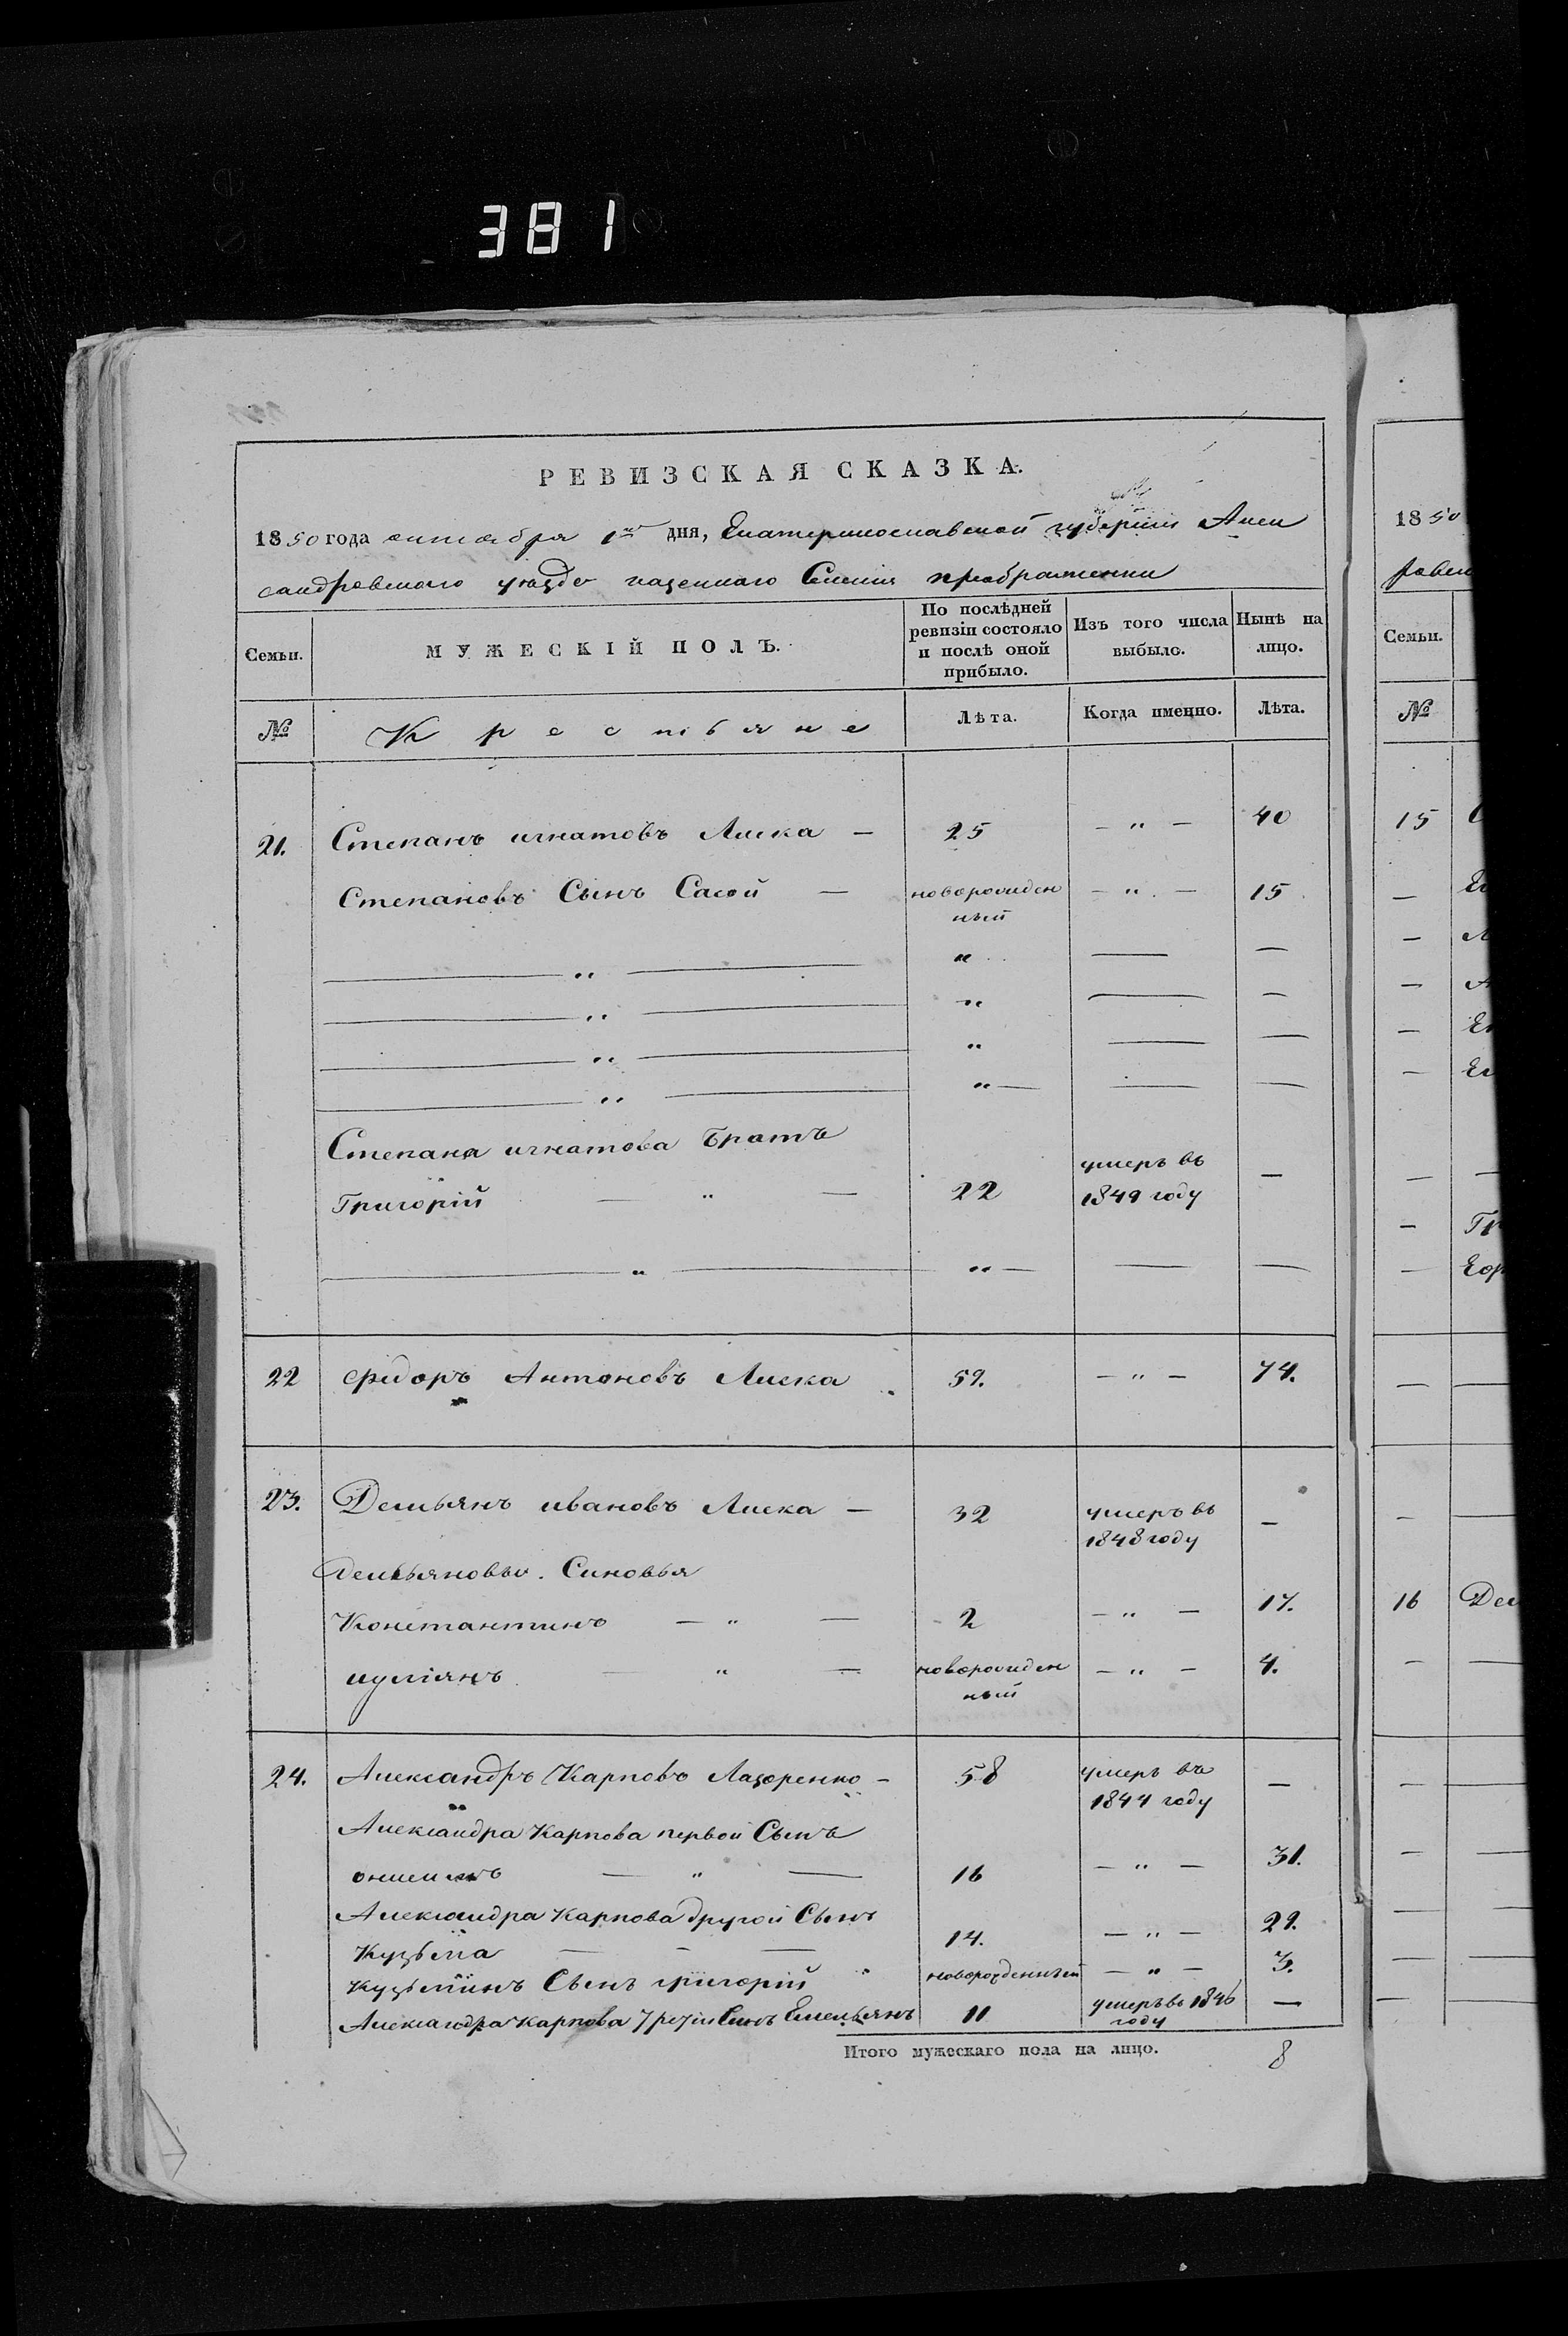 381
РЕВИЗСКАЯ СКАЗКА.
1850 года октября 1го дня, Екатеринославской губерніи Алек
сандровскаго уѣзда казеннаго Селенія преображенки
Семьи. МУЖЕСКІЙ ПОЛЪ. По послѣдней ревизіи состояло и послѣ оной прибыло. Изъ того числа выбыло. Нынѣ на лицо.
№ Крестьяне Лѣта. Когда именно. Лѣта.
21. Степанъ игнатовъ Лиска — 25 — " — 40
Степановъ Сынъ Сасой — новорожден ный — " — 15
— " — " — —
— " — " — —
— " — " — —
— " — " — —
Степана игнатова Братъ
Григорій — " — 22 умеръ въ 1849 году —
— " — " — —
22 федоръ Антоновъ Лиска 59. — " — 74.
23. Демьянъ ивановъ Лиска — 32 умеръ въ 1848 году —
демьяновы. Синовья
Константинъ — " — 2 — " — 17.
иуліянъ — " — новорожден ный — " — 4.
24. Александръ Карповъ Лазоренко — 58 умеръ въ 1844 году —
Александра Карпова первой Сынъ
— " — 16 — " — 31.
Александра Карпова другой Сынъ
Кузьма — - — 14. — " — 29.
Кузьминъ Сынъ григорій " новорожденный — " — 3.
Александра Карпова третій Синъ Емельянъ 11 умеръ въ 1846 году —
Итого мужескаго пола на лицо. 8
1850
Семьи.
№
15
16